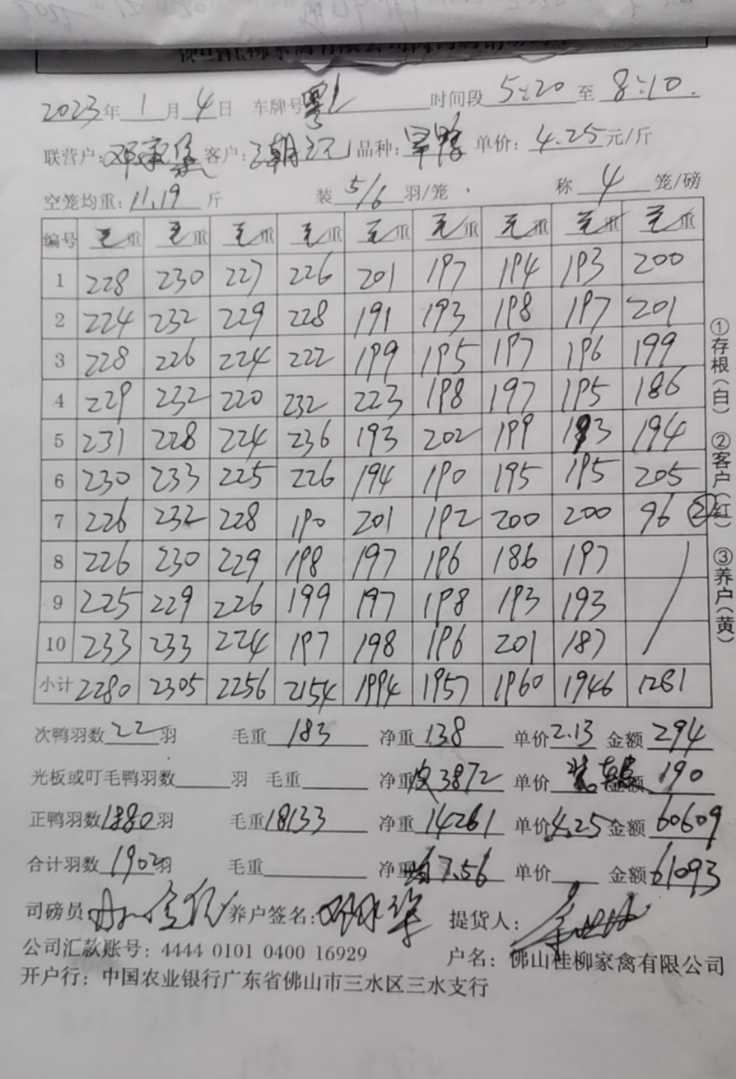 2023年 1 月 4 日 车牌号 粤 时间段 5:20 至 8:10.
联营户: 邓家 客户: 品种: 旱鸭 单价: 4.25 元/斤
空笼均重: 11.19 斤 装 5/6 羽/笼 称 4 笼/磅
编号 毛重 毛重 毛重 毛重 毛重 毛重 毛重 毛重 毛重
1 228 230 227 226 201 197 194 193 200
2 224 232 229 228 191 193 198 197 201
3 228 226 224 222 199 195 197 196 199
4 229 232 220 232 223 198 197 195 186
5 231 228 224 236 193 202 199 193 194
6 230 233 225 226 194 190 195 195 205
7 226 232 228 190 201 192 200 200 96 ②
8 226 230 229 198 197 196 186 197
9 225 229 226 199 197 198 193 193
10 233 233 224 197 198 196 201 187
小计 2280 2305 2256 2154 1994 1957 1960 1946 1281
①存根(白) ②客户(红) ③养户(黄)
次鸭羽数 22 羽 毛重 183 净重 138 单价 2.13 金额 294
光板或叮毛鸭羽数 羽 毛重 净重 皮3872 单价 金额 190
正鸭羽数 1880 羽 毛重 18133 净重 14261 单价 4.25 金额 60609
合计羽数 1902 羽 毛重 净重 均7.56 单价 金额 61093
司磅员 养户签名: 提货人:
公司汇款账号: 4444 0101 0400 16929 户名: 佛山桂柳家禽有限公司
开户行: 中国农业银行广东省佛山市三水区三水支行